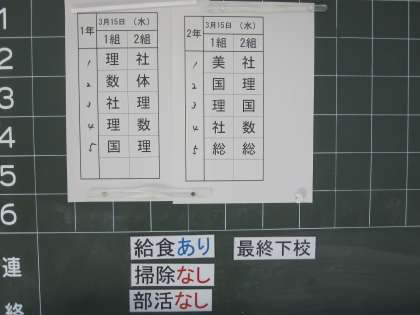 1年 3月15日 （水）
1組 2組
1 理 社
2 数 体
3 社 理
4 理 数
5 国 理
2年 3月15日 （水）
1組 2組
1 美 社
2 国 理
3 理 国
4 社 数
5 総 総
1
2
3
4
5
6
連
絡
給食あり 最終下校
掃除なし
部活なし